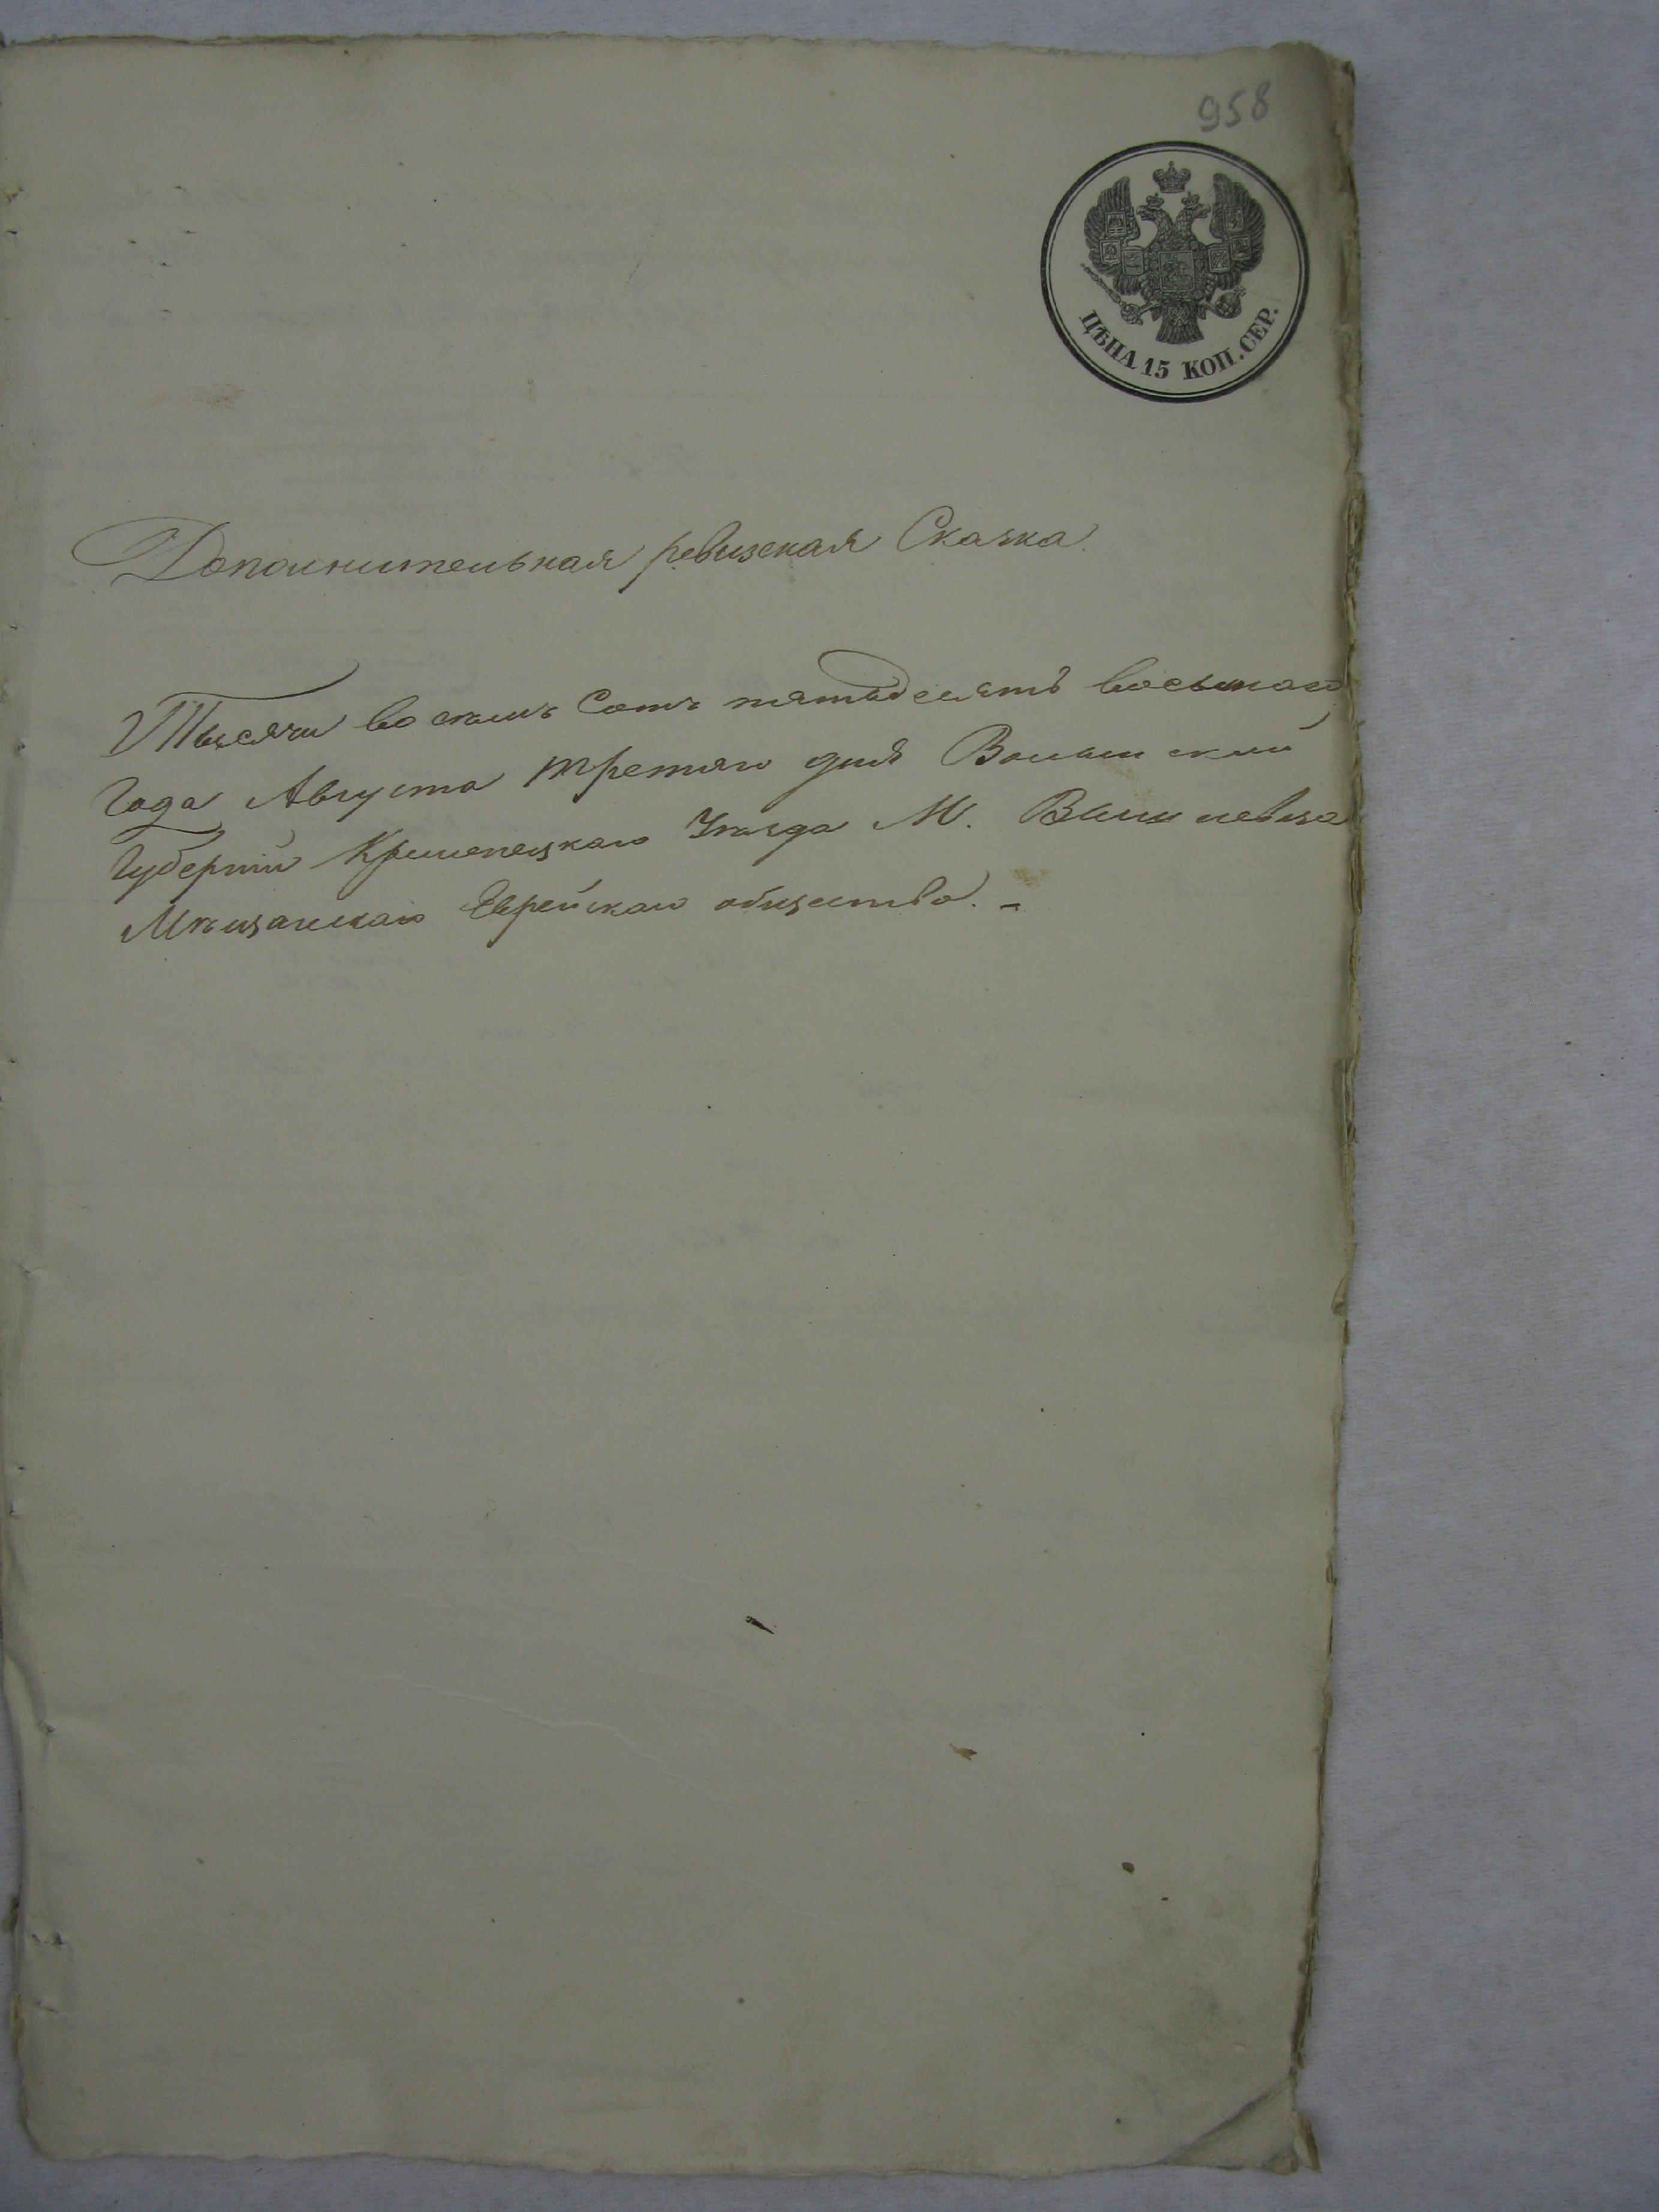 958
ЦѢНА 15 КОП. СЕР.
Дополнительная ревизская Сказка.
Тысячи восемь Сотъ пятьдесятъ восьмаго
Года Августа третяго дня Волынской
Губерніи Кременецкаго Уѣзда М. Вишневца
Мѣщанскаго Еврейскаго общества. -